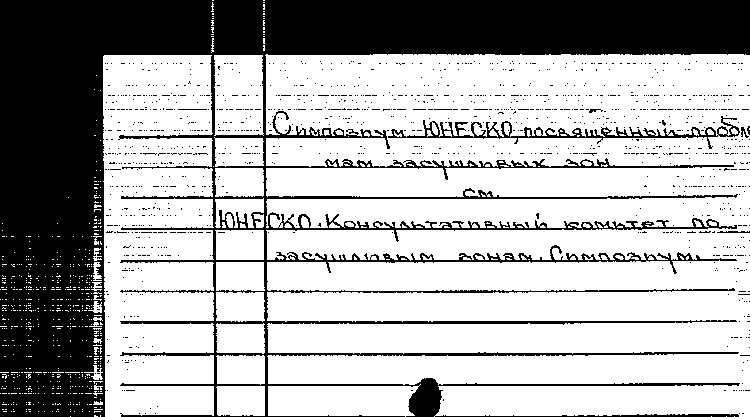 Симпозиум ЮНЕСКО, посвященный пробле
мам засушливых зон
см.
ЮНЕСКО. Консультативный комитет по
засушливым зонам. Симпозиум.